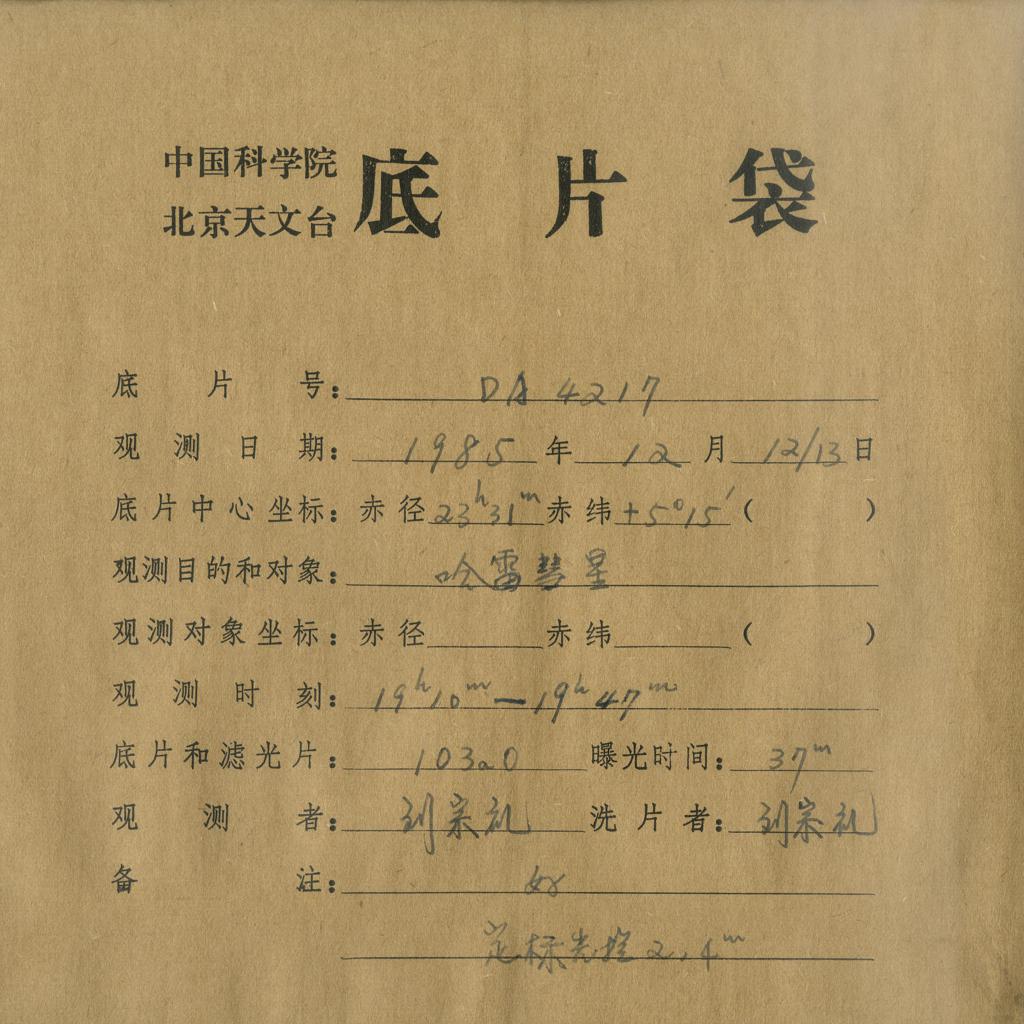 中国科学院
北京天文台
底片袋
底片号： DA 4217
观测日期： 1985 年 12 月 12/13 日
底片中心坐标： 赤径 23h31m 赤纬 +5°15′ （ ）
观测目的和对象： 哈雷彗星
观测对象坐标： 赤径 赤纬 （ ）
观测时刻： 19h10m — 19h47m
底片和滤光片： 103aO 曝光时间： 37m
观测者： 刘宗礼 洗片者： 刘宗礼
备注： 好
定标光 2.4m